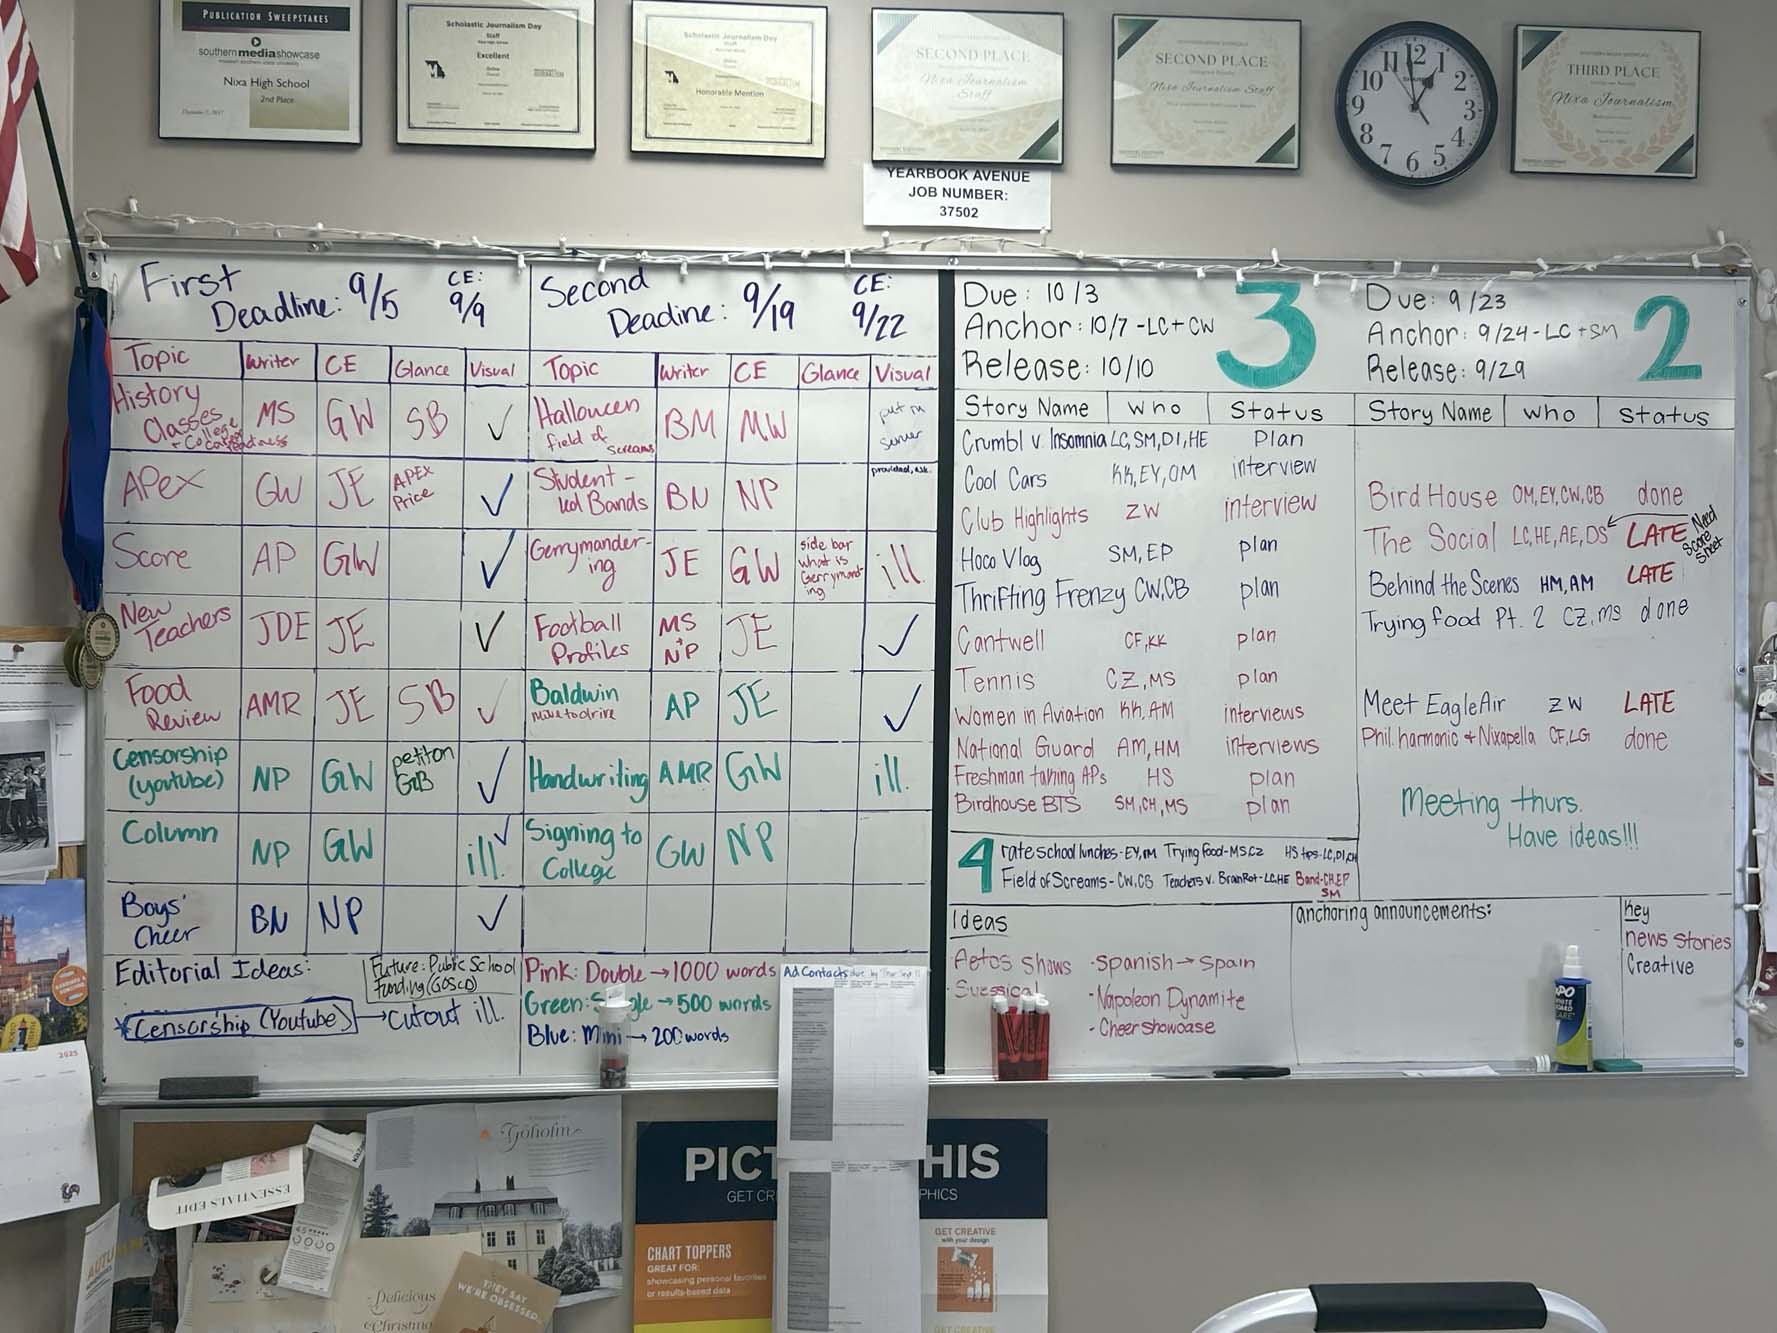 PUBLICATION SWEEPSTAKES
southern media showcase
Nixa High School
2nd Place
Scholastic Journalism Day
Staff
Excellent
Scholastic Journalism Day
Staff
Honorable Mention
SECOND PLACE
Nixa Journalism
Staff
SECOND PLACE
Nixa Journalism Staff
12 1 2 3 4 5 6 7 8 9 10 11
THIRD PLACE
Nixa Journalism
YEARBOOK AVENUE
JOB NUMBER:
37502
First
Deadline: 9/5
CE:
9/9
Topic Writer CE Glance Visual
History Classes + College Career Readiness MS GW SB ✓
APEX GW JE APEX Price ✓
Score AP GW ✓
New Teachers JDE JE ✓
Food Review AMR JE SB ✓
Censorship (youtube) NP GW petiton GB ✓
Column NP GW ill. ✓
Boys' Cheer BN NP ✓
Editorial Ideas:
Future: Public School
funding (GOSCD)
*Censorship (Youtube) → cutout ill.
Second
Deadine: 9/19
CE:
9/22
Topic Writer CE Glance Visual
Halloween field of screams BM MW put in server
Student-led Bands BN NP provided, ask.
Gerrymander-ing JE GW side bar what is Gerrymand-ing ill.
Football Profiles MS + NP JE ✓
Baldwin AP JE ✓
Handwriting AMR GW ill.
Signing to College GW NP
Pink: Double → 1000 words
Green: Single → 500 words
Blue: Mini → 200 words
Ad Contacts
Due: 10/3
Anchor: 10/7 - LC + CW
Release: 10/10
3
Story Name Who Status
Crumbl v. Insomnia LC, SM, DI, HE Plan
Cool Cars KK, EY, OM interview
Club Highlights ZW interview
Hoco Vlog SM, EP plan
Thrifting Frenzy CW, CB plan
Cantwell CF, KK plan
Tennis CZ, MS plan
Women in Aviation KK, AM interviews
National Guard AM, HM interviews
Freshman taking APs HS plan
Birdhouse BTS SM, CH, MS plan
4
rate school lunches - EY, OM Trying Food - MS, CZ HS tips - LC, DI, CH
Field of Screams - CW, CB Teachers v. BrainRot - LC, HE Band - CH, EP
SM
Due: 9/23
Anchor: 9/24 - LC + SM
Release: 9/29
2
Story Name who Status
Bird House OM, EY, CW, CB done
The Social LC, HE, AE, DS LATE Need Score Sheet
Behind the Scenes HM, AM LATE
Trying food Pt. 2 CZ, MS done
Meet EagleAir ZW LATE
Phil. harmonic + Nixapella CF, LG done
Meeting thurs.
Have ideas!!!
Ideas
Aetos shows
· Suessical
· Spanish → Spain
· Napoleon Dynamite
· Cheer showcase
anchoring announcements:
Key
news stories
Creative
EXPO
WHITE BOARD CARE
2025
ESSENTIALS EDIT
Göholm
Delicious
Christmas
THEY SAY
WE'RE OBSESSED
PICT HIS
GET CRE PHICS
CHART TOPPERS
GREAT FOR:
showcasing personal favorites
or results-based data
GET CREATIVE
with your design
GET CREATIVE